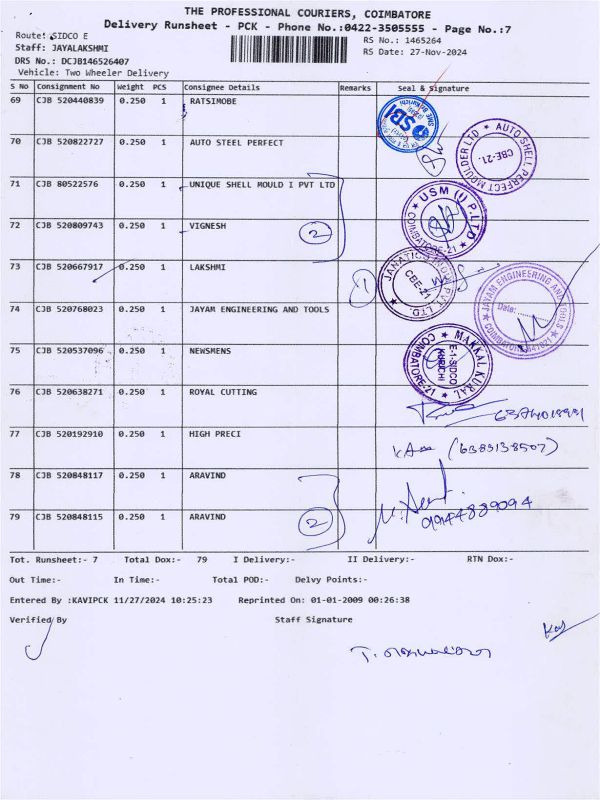 THE PROFESSIONAL COURIERS, COIMBATORE
Delivery Runsheet - PCK - Phone No.:0422-3505555 - Page No.:7
Route: SIDCO E
RS No.: 1465264
Staff: JAYALAKSHMI
RS Date: 27-Nov-2024
DRS No.: DCJB146526407
Vehicle: Two Wheeler Delivery
S No Consignment No Weight PCS Consignee Details Remarks Seal & Signature
69 CJB 520440839 0.250 1 RATSIMOBE
SBI
70 CJB 520822727 0.250 1 AUTO STEEL PERFECT
AUTO SHELL PERFECT MOULDER LTD CBE-21.
71 CJB 80522576 0.250 1 UNIQUE SHELL MOULD I PVT LTD
USM (I) P.LTD COIMBATORE-21
72 CJB 520809743 0.250 1 VIGNESH
2
73 CJB 520667917 0.250 1 LAKSHMI
1
CBE-21
74 CJB 520768023 0.250 1 JAYAM ENGINEERING AND TOOLS
JAYAM ENGINEERING AND TOOLS Date:
75 CJB 520537096 0.250 1 NEWSMENS
MAKKAL KURAL E-1-SIDCO KURICHI COIMBATORE-21
76 CJB 520638271 0.250 1 ROYAL CUTTING
77 CJB 520192910 0.250 1 HIGH PRECI
(6383138507)
78 CJB 520848117 0.250 1 ARAVIND
9944889094
79 CJB 520848115 0.250 1 ARAVIND
2
Tot. Runsheet:- 7 Total Dox:- 79 I Delivery:- II Delivery:- RTN Dox:-
Out Time:- In Time:- Total POD:- Delvy Points:-
Entered By :KAVIPCK 11/27/2024 10:25:23 Reprinted On: 01-01-2009 00:26:38
Verified By Staff Signature